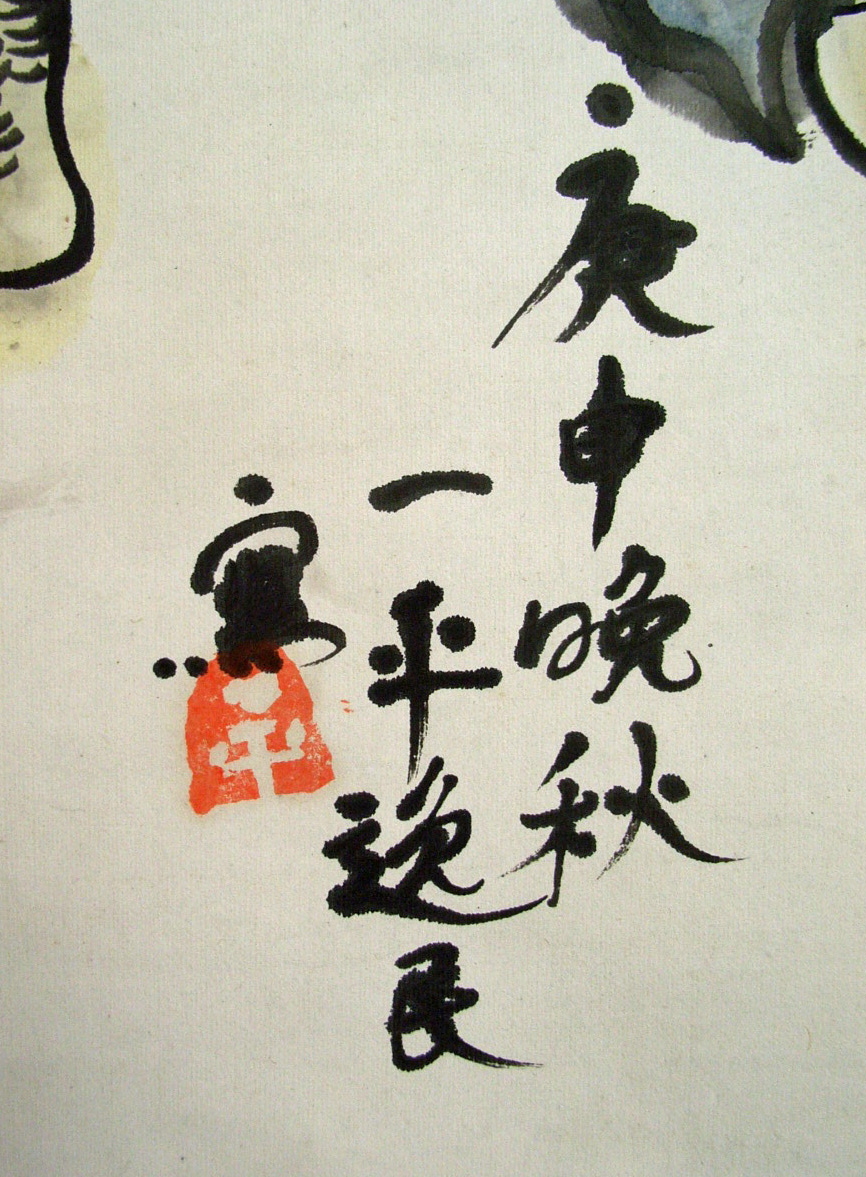 庚申晚秋
一平逸民
寫